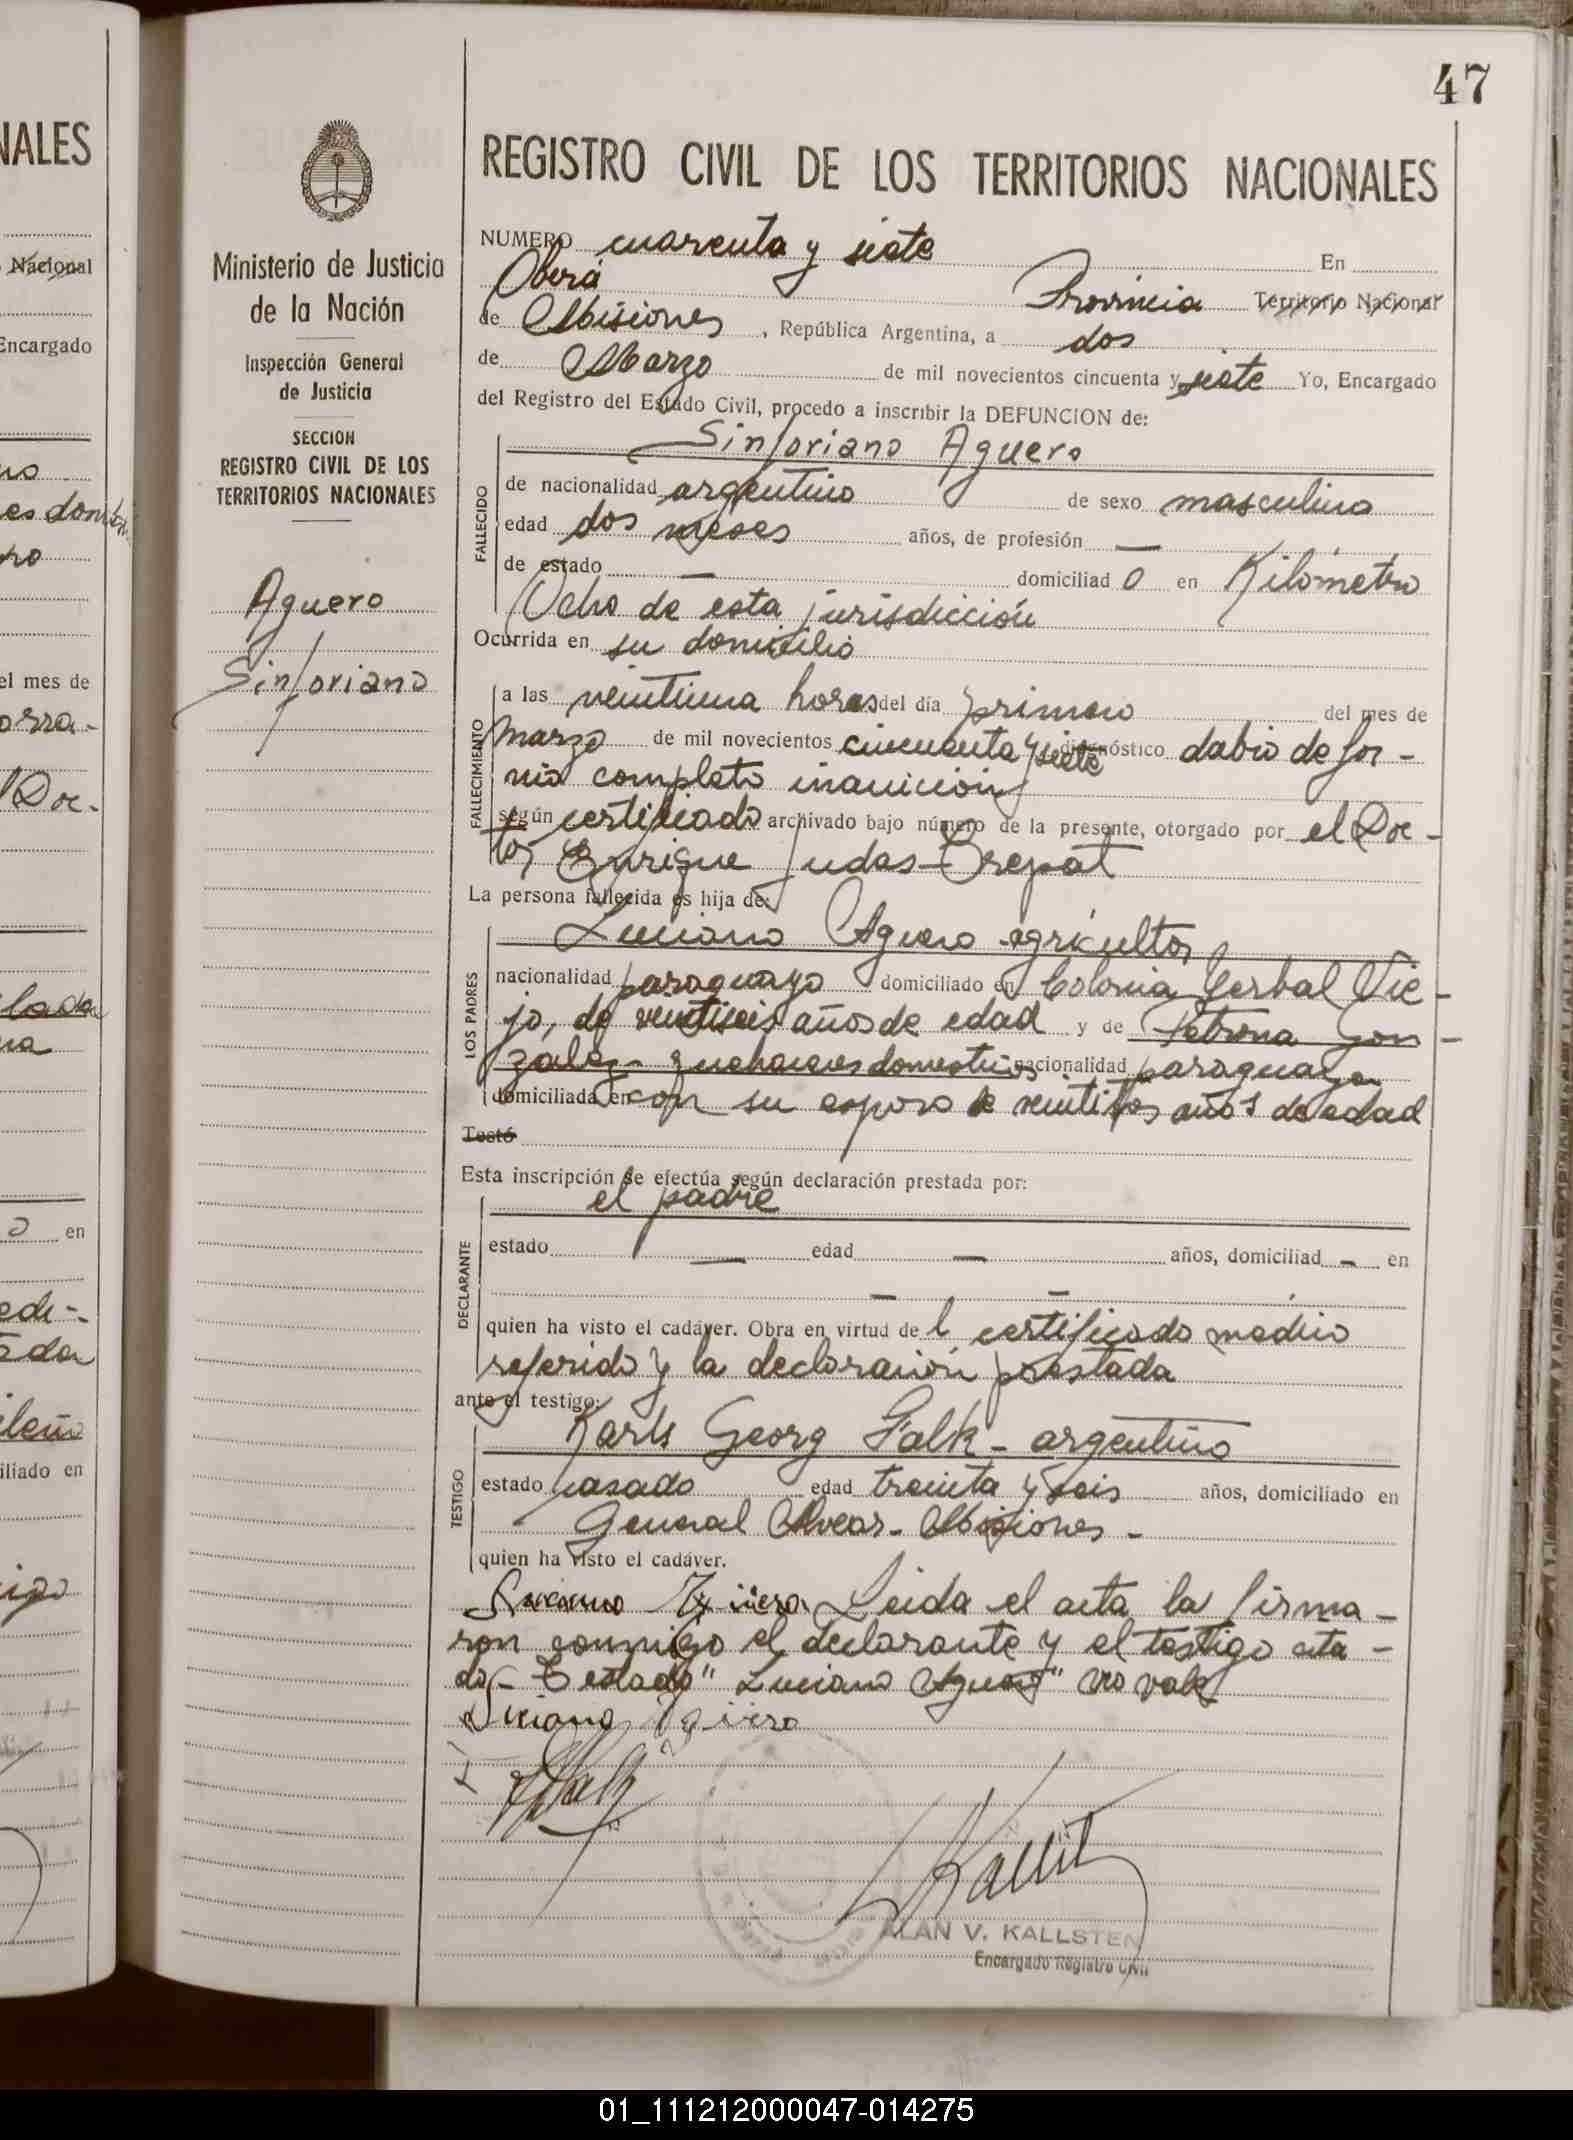 47
NALES
Nacional
Encargado
el mes de
en
iliado en
Ministerio de Justicia
de la Nación
Inspección General
de Justicia
SECCION
REGISTRO CIVIL DE LOS
TERRITORIOS NACIONALES
Aguero
Sinforiano
REGISTRO CIVIL DE LOS TERRITORIOS NACIONALES
NUMERO cuarenta y siete En
Oberá Provincia Territorio Nacional
de Misiones, República Argentina, a dos
de Marzo de mil novecientos cincuenta y siete Yo, Encargado
del Registro del Estado Civil, procedo a inscribir la DEFUNCION de:
Sinforiano Aguero
FALLECIDO
de nacionalidad argentino de sexo masculino
edad dos meses años, de profesión —
de estado — domiciliad o en Kilómetro
Ocho de esta jurisdicción
Ocurrida en su domicilio
FALLECIMIENTO
a las veintiuna horas del día primero del mes de
marzo de mil novecientos cincuenta y siete diagnóstico dabio de for-
nia completo inanición
según certificado archivado bajo número de la presente, otorgado por el Doc-
tor Enrique Judas Brepat
La persona fallecida es hija de:
LOS PADRES
Luciano Aguero agricultor
nacionalidad paraguayo domiciliado en Colonia Yerbal Vie-
jo, de veintiseis años de edad y de Petrona Gon-
zalez quehaceres domesticos nacionalidad paraguaya
domiciliada en con su esposo de veintitos años de edad
Testó
Esta inscripción se efectúa según declaración prestada por:
el padre
DECLARANTE
estado — edad — años, domiciliad — en
— —
quien ha visto el cadáver. Obra en virtud de l certificado medico
referido y la declaración prestada
ante el testigo:
TESTIGO
Karls Georg Falk - argentino
estado casado edad treinta y seis años, domiciliado en
General Alvear - Misiones -
quien ha visto el cadáver.
Leida el acta la firma-
ron conmigo el declarante y el testigo cita-
do - Testado "Luciano Aguero" no vale
Luciano Aguero
ALAN V. KALLSTEN
Encargado Registro Civil
01_111212000047-014275